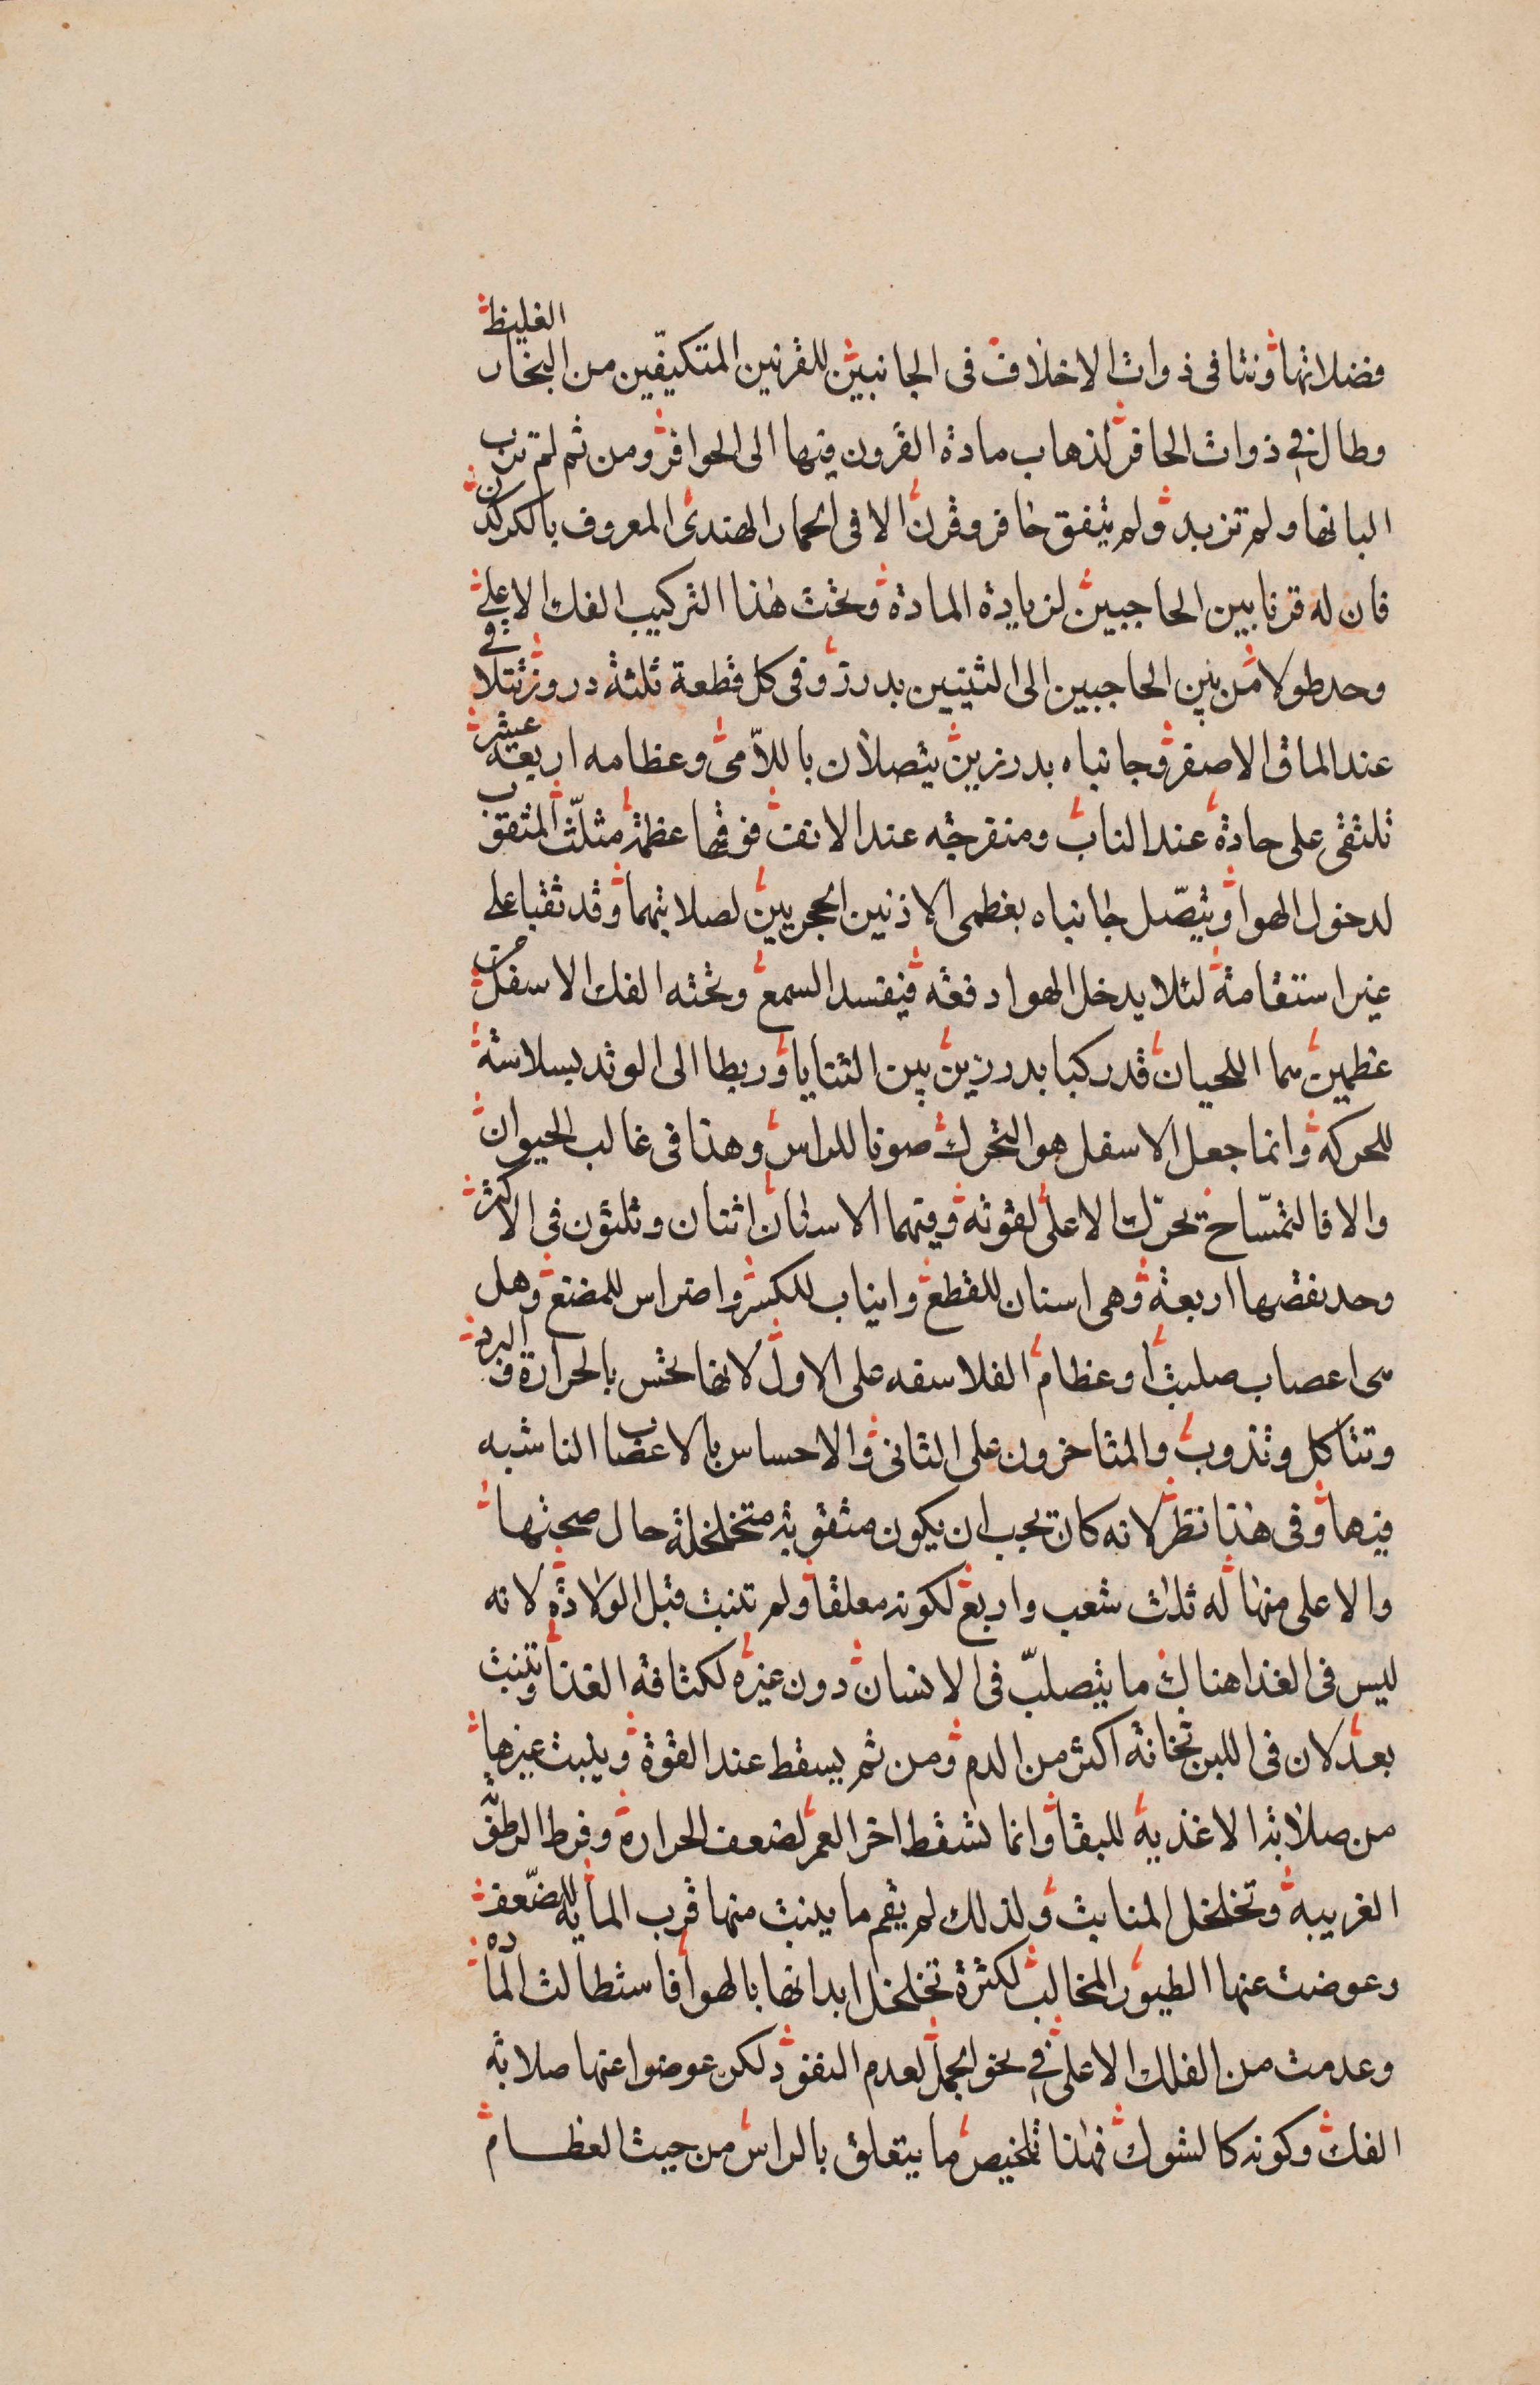 فضلاتها ونتا فى ذوات الاخلاف فى الجانبين للقرنين المتكيفين من البخار الغليظ
وطال فى ذوات الحافر لذهاب مادة القرون فيها الى الحوافر ومن ثم لم ترب
البانها ولم تزبد ولم يتفق حافر وقرن الا فى الحمار الهندى المعروف بالكركدن
فان له قرنا بين الحاجبين لزيادة المادة وتحت هذا التركيب الفك الاعلى
وحد طولا من بين الحاجبين الى الثنيتين بدرز وفى كل قطعة ثلثة دروز تتلاقى
عند الماق الاصغر وجانباه بدرزين يتصلان باللامى وعظامه اربعة عشر
تلتقى على حادة عند الناب ومنفرجه عند الانف فوقها عظمة مثلث المثقوب
لدخول الهوا ويتصل جانباه بعظمى الاذنين الحجريين لصلابتهما وقد ثقبا على
غير استقامة لئلا يدخل الهوا دفعه فيفسد السمع وتحته الفك الاسفل من
عظمين هما اللحيان قد ركبا بدرزين بين الثنايا وربطا الى الوتد بسلاسة
للحركة وانما جعل الاسفل هو التحرك صونا للراس وهذا فى غالب الحيوان
والا فالتمساح تحرك الاعلى لقوته وفيهما الاسنان اثنان وثلثون فى الاكثر
وحد نقصها اربعة وهى اسنان للقطع وانياب للكسر واضراس للمضغ وهل
هى اعصاب صلبت او عظام الفلاسفه على الاول لانها تحس بالحرارة والبرد
وتتاكل وتذوب والمتاخرون على الثانى والاحساس بالاعضاب الناشبه
فيها وفى هذا نظر لانه كان يجب ان يكون مثقوبة متخلخلة حال صحتها
والاعلى منها له ثلاث شعب واربع لكونه معلقا ولم تنبت قبل الولادة لانه
ليس فى الغذا هناك ما يتصلب فى الانسان دون غيره لكثافة الغذا وتنبت
بعد لان فى اللبن ثخانة اكثر من الدم ومن ثم يسقط عند القوة وينبت غيرها
من صلابة الاغذية للبقا وانما تسقط اخر العمر لضعف الحرارة وفرط الرطوبة
الغريبه وتخلخل المنابت ولذلك لم يقم ما ينبت منها قرب الماية للضعف
وعوضت عنها الطيور المخالب لكثرة تخلخل ابدانها بالهوا فاستطالت المادة
وعدمت من الفلك الاعلى فى نحو الجمل لعدم النفوذ لكن عوضوا عنها صلابة
الفك وكونه كالشوك فهذا تلخيص ما يتعلق بالراس من حيث العظام